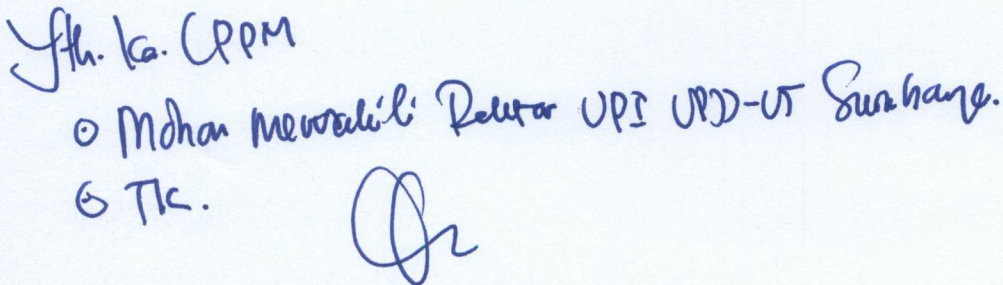 Yth. Ka. LPPM
o Mohon mewakili Rektor UPI UPJJ-UT Surabaya.
o TK.